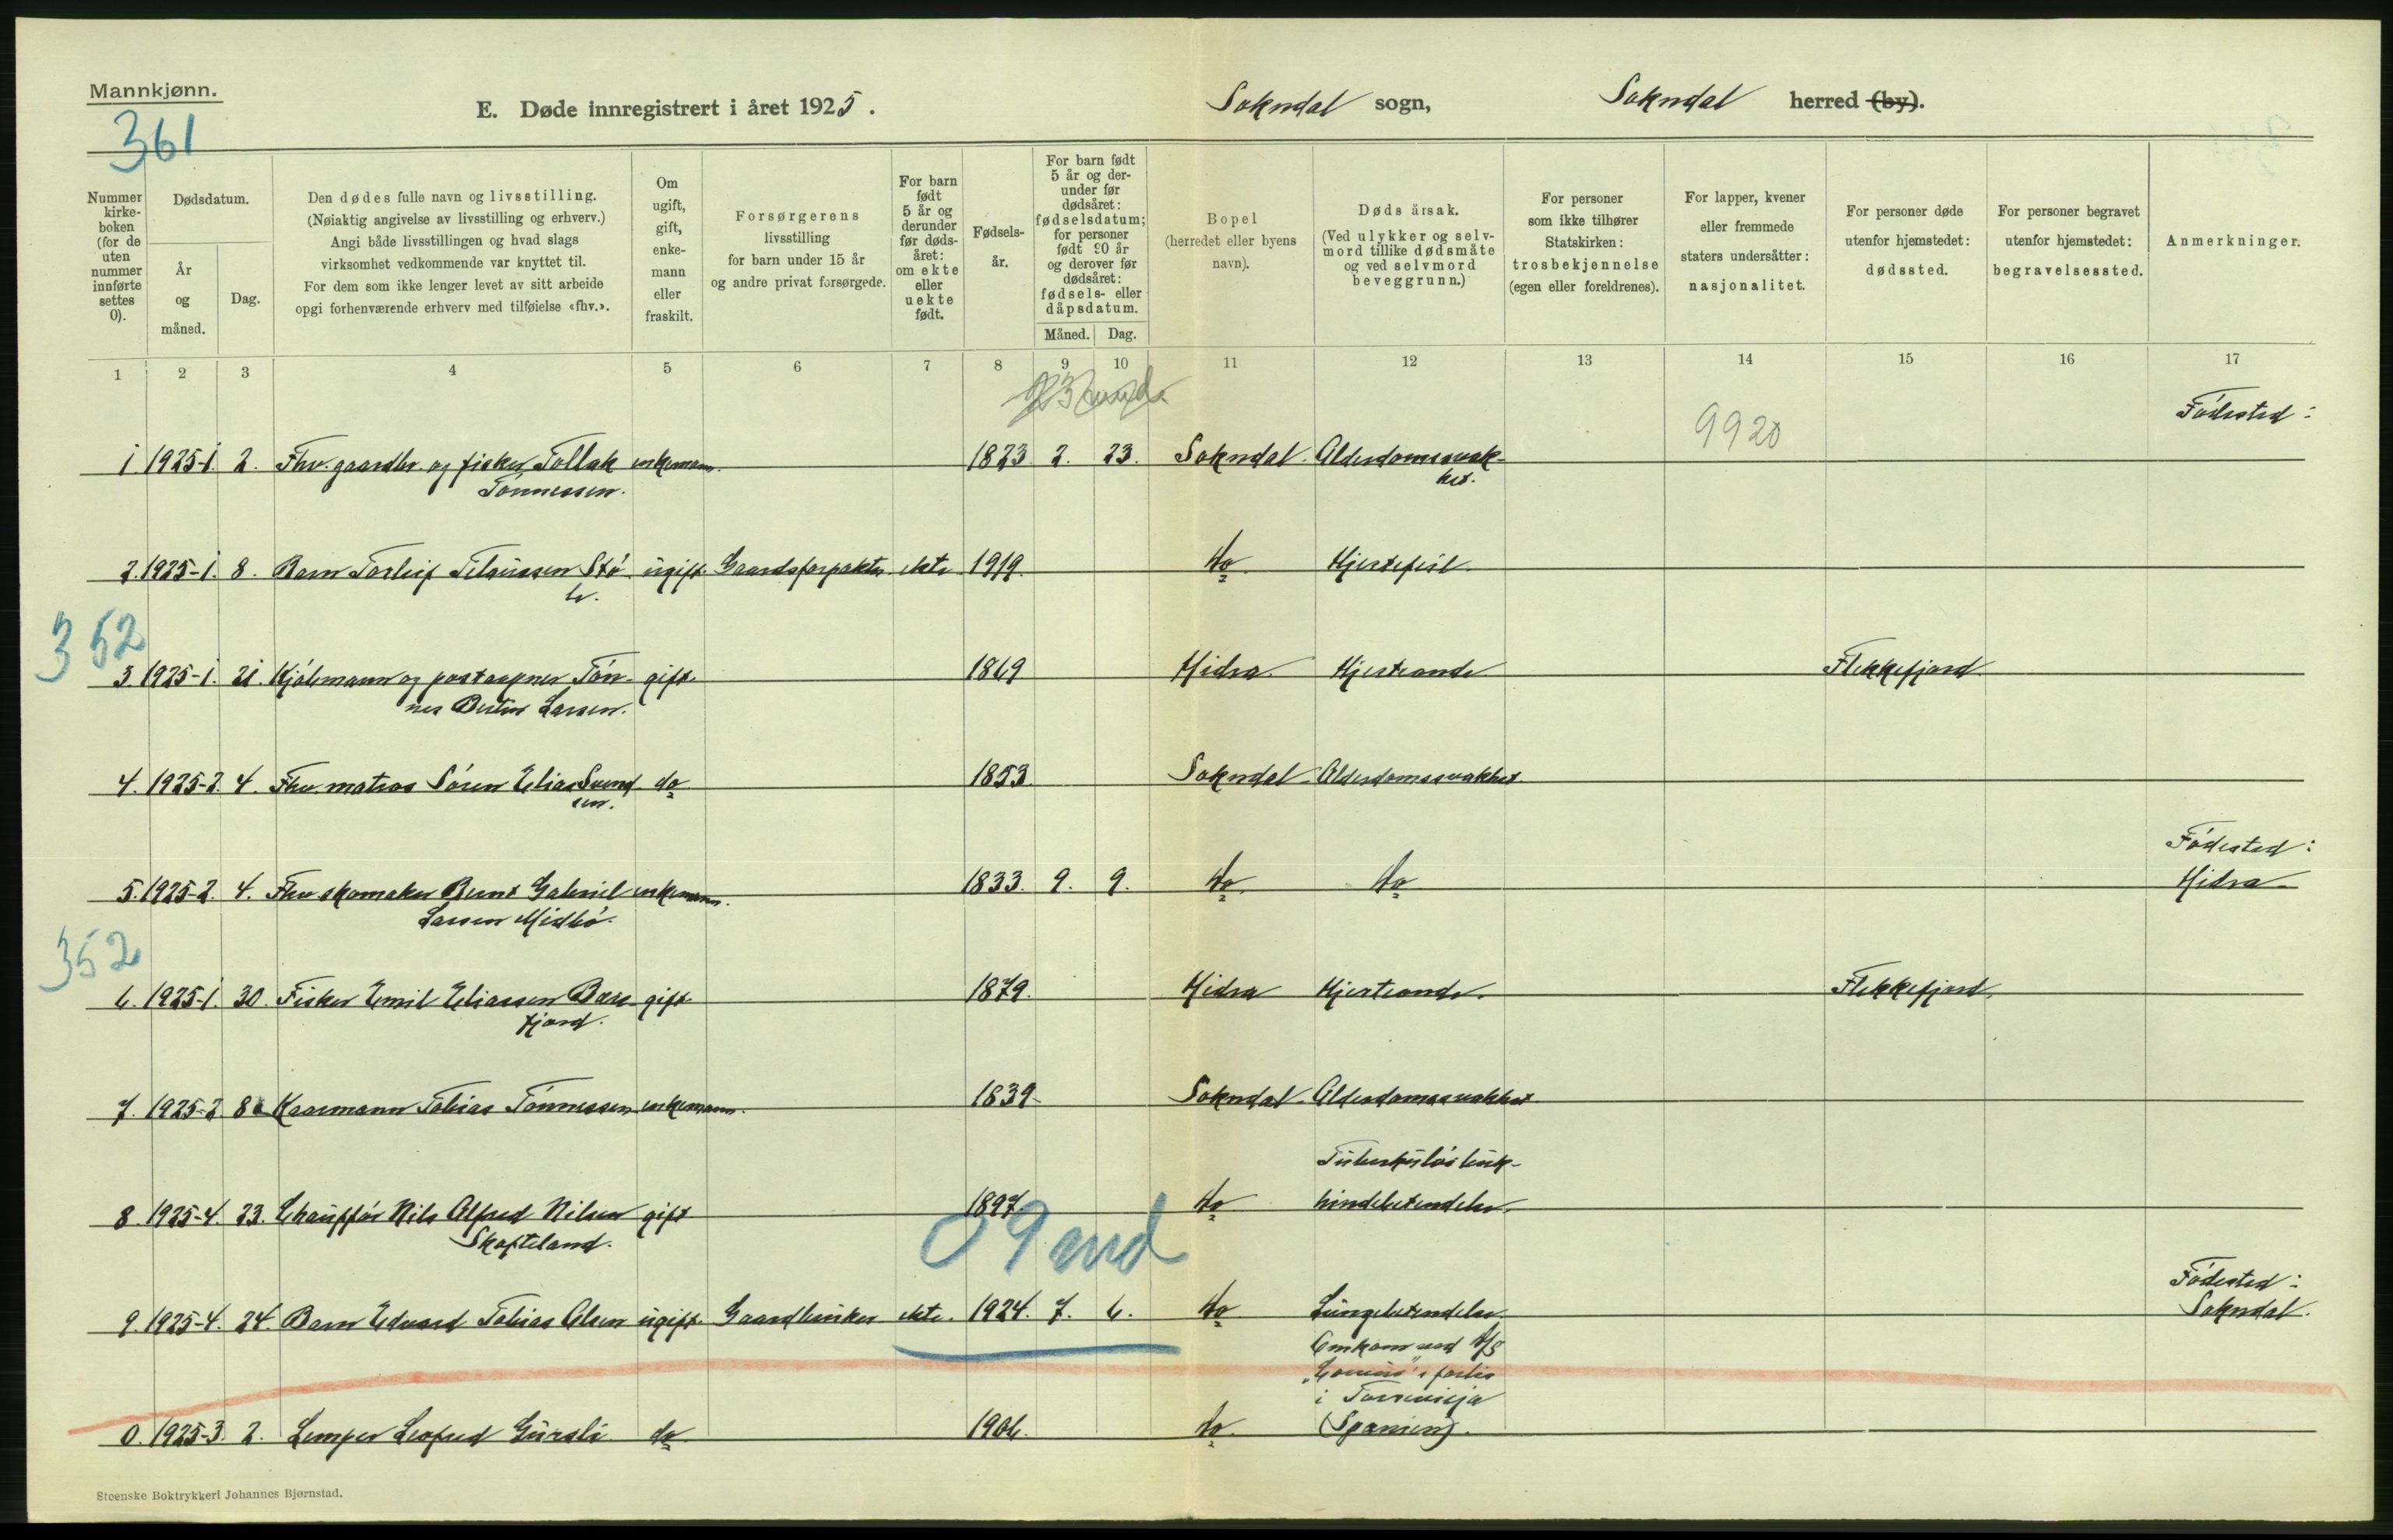 Mannkjønn.
361
E. Døde innregistrert i året 1925.
Sokndal sogn,
Sokndal herred (by).
Nummer kirke- boken (for de uten nummer innførte settes 0).
Dødsdatum.
År og måned.
Dag.
Den dødes fulle navn og livsstilling.
(Nøiaktig angivelse av livsstilling og erhverv.)
Angi både livsstillingen og hvad slags
virksomhet vedkommende var knyttet til.
For dem som ikke lenger levet av sitt arbeide
opgi forhenværende erhverv med tilføielse «fhv.».
Om ugift, gift, enke- mann eller fraskilt.
Forsørgerens
livsstilling
for barn under 15 år
og andre privat forsørgede.
For barn født 5 år og derunder før døds- året: om ekte eller uekte født.
Fødsels- år.
For barn født 5 år og der- under før dødsåret: fødselsdatum; for personer født 90 år og derover før dødsåret: fødsels- eller dåpsdatum.
Måned. Dag.
Bopel
(herredet eller byens
navn).
Døds årsak.
(Ved ulykker og selv-
mord tillike dødsmåte
og ved selvmord
beveggrunn.)
For personer
som ikke tilhører
Statskirken:
trosbekjennelse
(egen eller foreldrenes).
For lapper, kvener
eller fremmede
staters undersåtter:
nasjonalitet.
For personer døde
utenfor hjemstedet:
dødssted.
For personer begravet
utenfor hjemstedet:
begravelsessted.
Anmerkninger.
1 2 3 4 5 6 7 8 9 10 11 12 13 14 15 16 17
9920
Fødested:
1 1925-1. 2. Fhv. gaardbr. og fisker Tollak enkemann. 1823 2. 23. Sokndal Alderdomssvak-
Tønnessen. het.
2. 1925-1. 8. Barn Torleif Telaussen Stø- ugift Gaardsforpakter ekte 1919. do Hjertefeil.
le.
352
3. 1925-1. 21. Kjølemann og postaapner Tøn- gift. 1869 Hidra. Hjerteonde Flekkefjord.
nes Bertin Larsen.
4. 1925-2. 4. Fhv. matros Søren Elias Svend do 1853. Sokndal Alderdomssvakhet
sen.
Fødested:
5. 1925-2. 4. Fhv skomaker Bernt Gabriel enkemann. 1833. 9. 9. do. do Hidra
Larsen Midbø.
352
6. 1925-1. 30. Fisker Emil Eliassen Raes- gift 1879. Hidra Hjerteonde. Flekkefjord.
fjord.
7. 1925-2 8 Kaarmann Tobias Tønnessen enkemann. 1839 Sokndal Alderdomssvakhet
Tuberkuløs buk-
8. 1925-4. 23. Chauffør Nils Alfred Nilsen gift 1897 do hindebetendelse.
Skofteland.
09 md
Fødested:
9. 1925-4. 24. Barn Edvard Tobias Olsen ugift. Gaardbruker ekte. 1924. 7. 6. do Lungebetendelse. Sokndal.
Omkom ved D/S
forlis
i Torrevieja
0. 1925-3. 2. Lemper Leofred Gursli do 1906. do. (Spanien).
Steenske Boktrykkeri Johannes Bjørnstad.